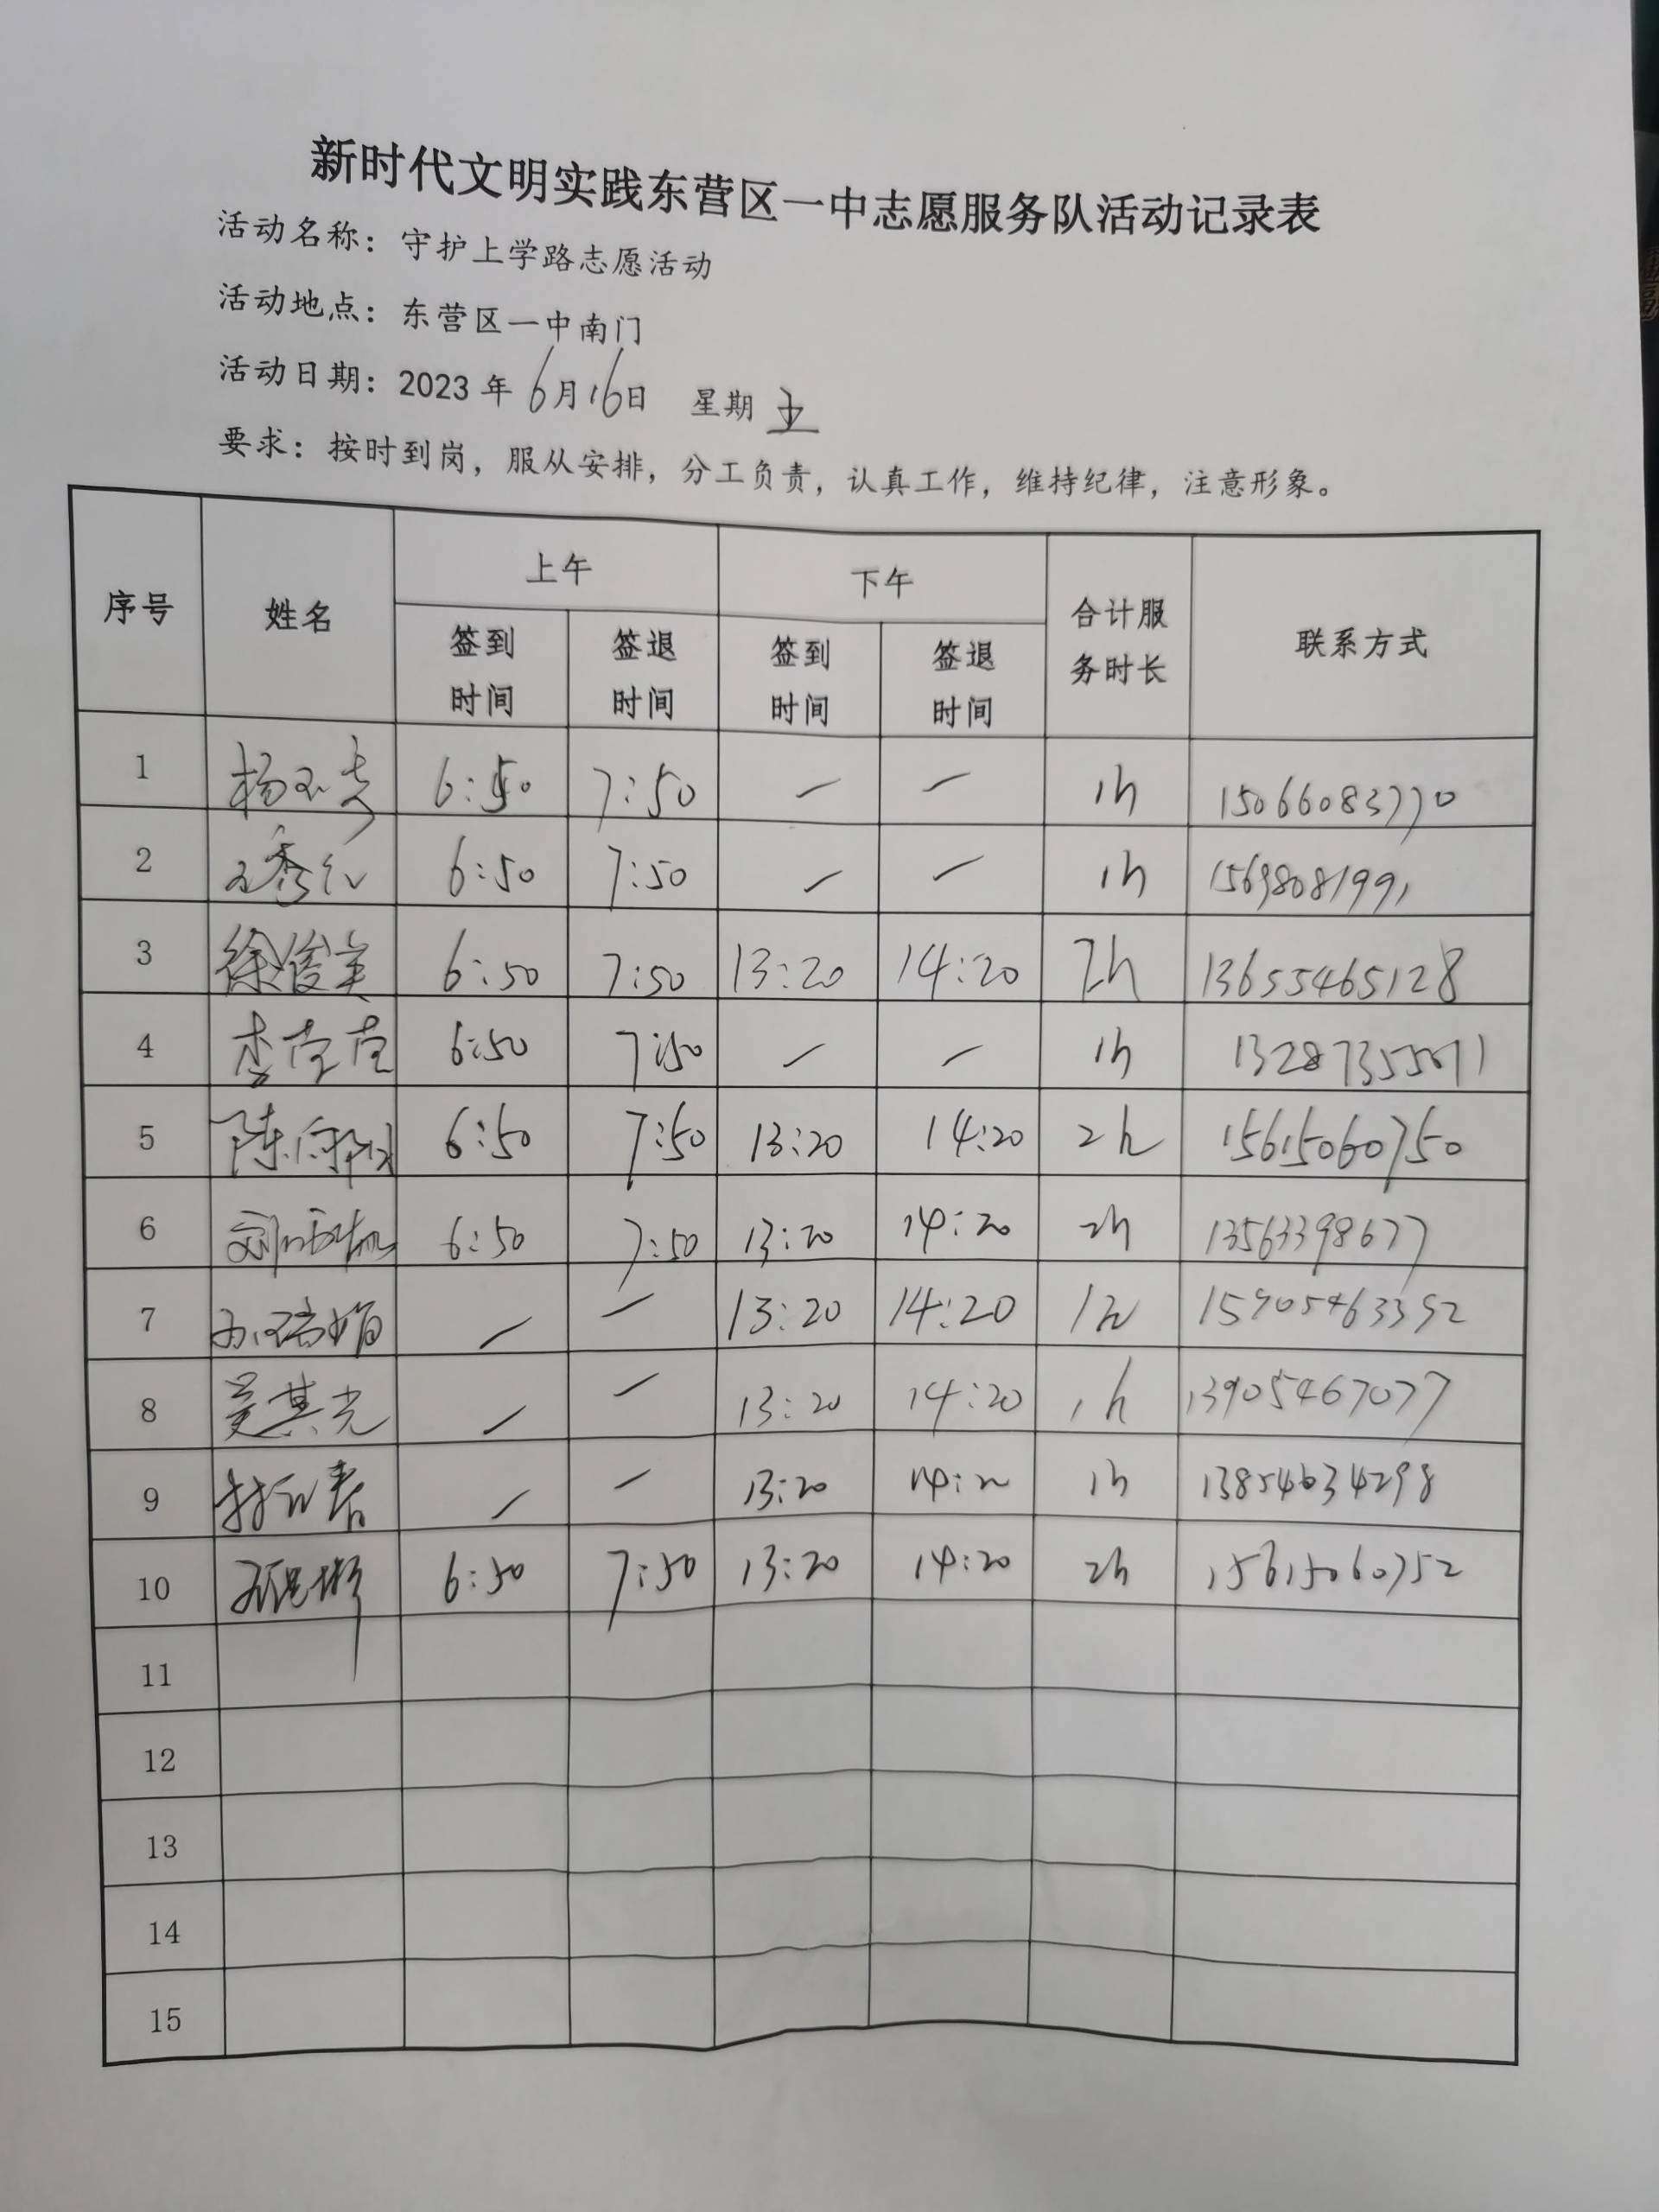 新时代文明实践东营区一中志愿服务队活动记录表
活动名称：守护上学路志愿活动
活动地点：东营区一中南门
活动日期：2023年6月16日 星期五
要求：按时到岗，服从安排，分工负责，认真工作，维持纪律，注意形象。
序号 姓名 上午 下午 合计服务时长 联系方式
签到时间 签退时间 签到时间 签退时间
1 6:50 7:50 — — 1h 15066083770
2 6:50 7:50 — — 1h 15698081991
3 徐俊美 6:50 7:50 13:20 14:20 2h 13655465128
4 6:50 7:50 — — 1h
5 6:50 7:50 13:20 14:20 2h 15615060750
6 6:50 7:50 13:20 14:20 2h 13563398677
7 — — 13:20 14:20 1h 15905463392
8 吴其光 — — 13:20 14:20 1h 13905467077
9 — — 13:20 14:20 1h 13854634298
10 6:50 7:50 13:20 14:20 2h 15615060752
11
12
13
14
15